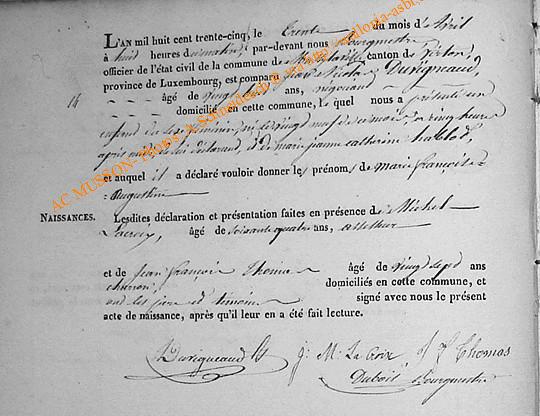 L'AN mil huit cent trente-cinq, le trente du mois d'Avril
à huit heures du matin, par-devant nous Bourgmestre
officier de l'état civil de la commune de canton de Virton,
province de Luxembourg, est comparu Jean Nicolas Durigneaud,
14 âgé de vingt ans,
domicilié en cette commune, lequel nous a présenté un
enfant du sexe féminin, né le vingt neuf de ce mois à cinq heures
après midi, de lui déclarant, et de marie jeanne catherine
et auquel il a déclaré vouloir donner les prénoms de marie françoise
Augustine
NAISSANCES. Lesdites déclaration et présentation faites en présence de Michel
Lacroix, âgé de soixante quatre ans,
et de Jean françois Thomas âgé de vingt sept ans
domiciliés en cette commune, et
ont les père et témoins signé avec nous le présent
acte de naissance, après qu'il leur en a été fait lecture.
Durigneaud J. M. La Croix J f Thomas
Duboit Bourgmestre
AC MUSSON-Photos A.Schmedesch